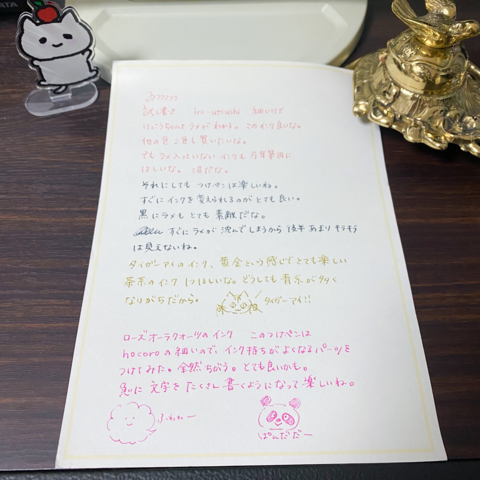 試し書き iro-utsushi 細いけど
けっこうちゃんとラメがわかる。このインク良いな。
他の色2色も買いたいな。
でもラメ入っていないインクも万年筆用に
ほしいな。沼だな。
それにしても つけペンは楽しいね。
すぐにインクを変えられるのがとても良い。
黒にラメも とても 素敵だな。
すぐにラメが沈んでしまうから 後半 あまり キラキラ
は見えないね。
タイガーアイのインク、黄金という感じでとても楽しい
茶系のインク 1つほしいな。どうしても青系が多く
なりがちだから。 タイガーアイ!!
ローズオーラクオーツのインク このつけペンは
hocoroの細いので、インク持ちがよくなるパーツを
つけてみた。全然ちがう。とても良いかも。
急に 文字を たくさん 書くようになって 楽しいね。
ふわわー
ぱんだだー